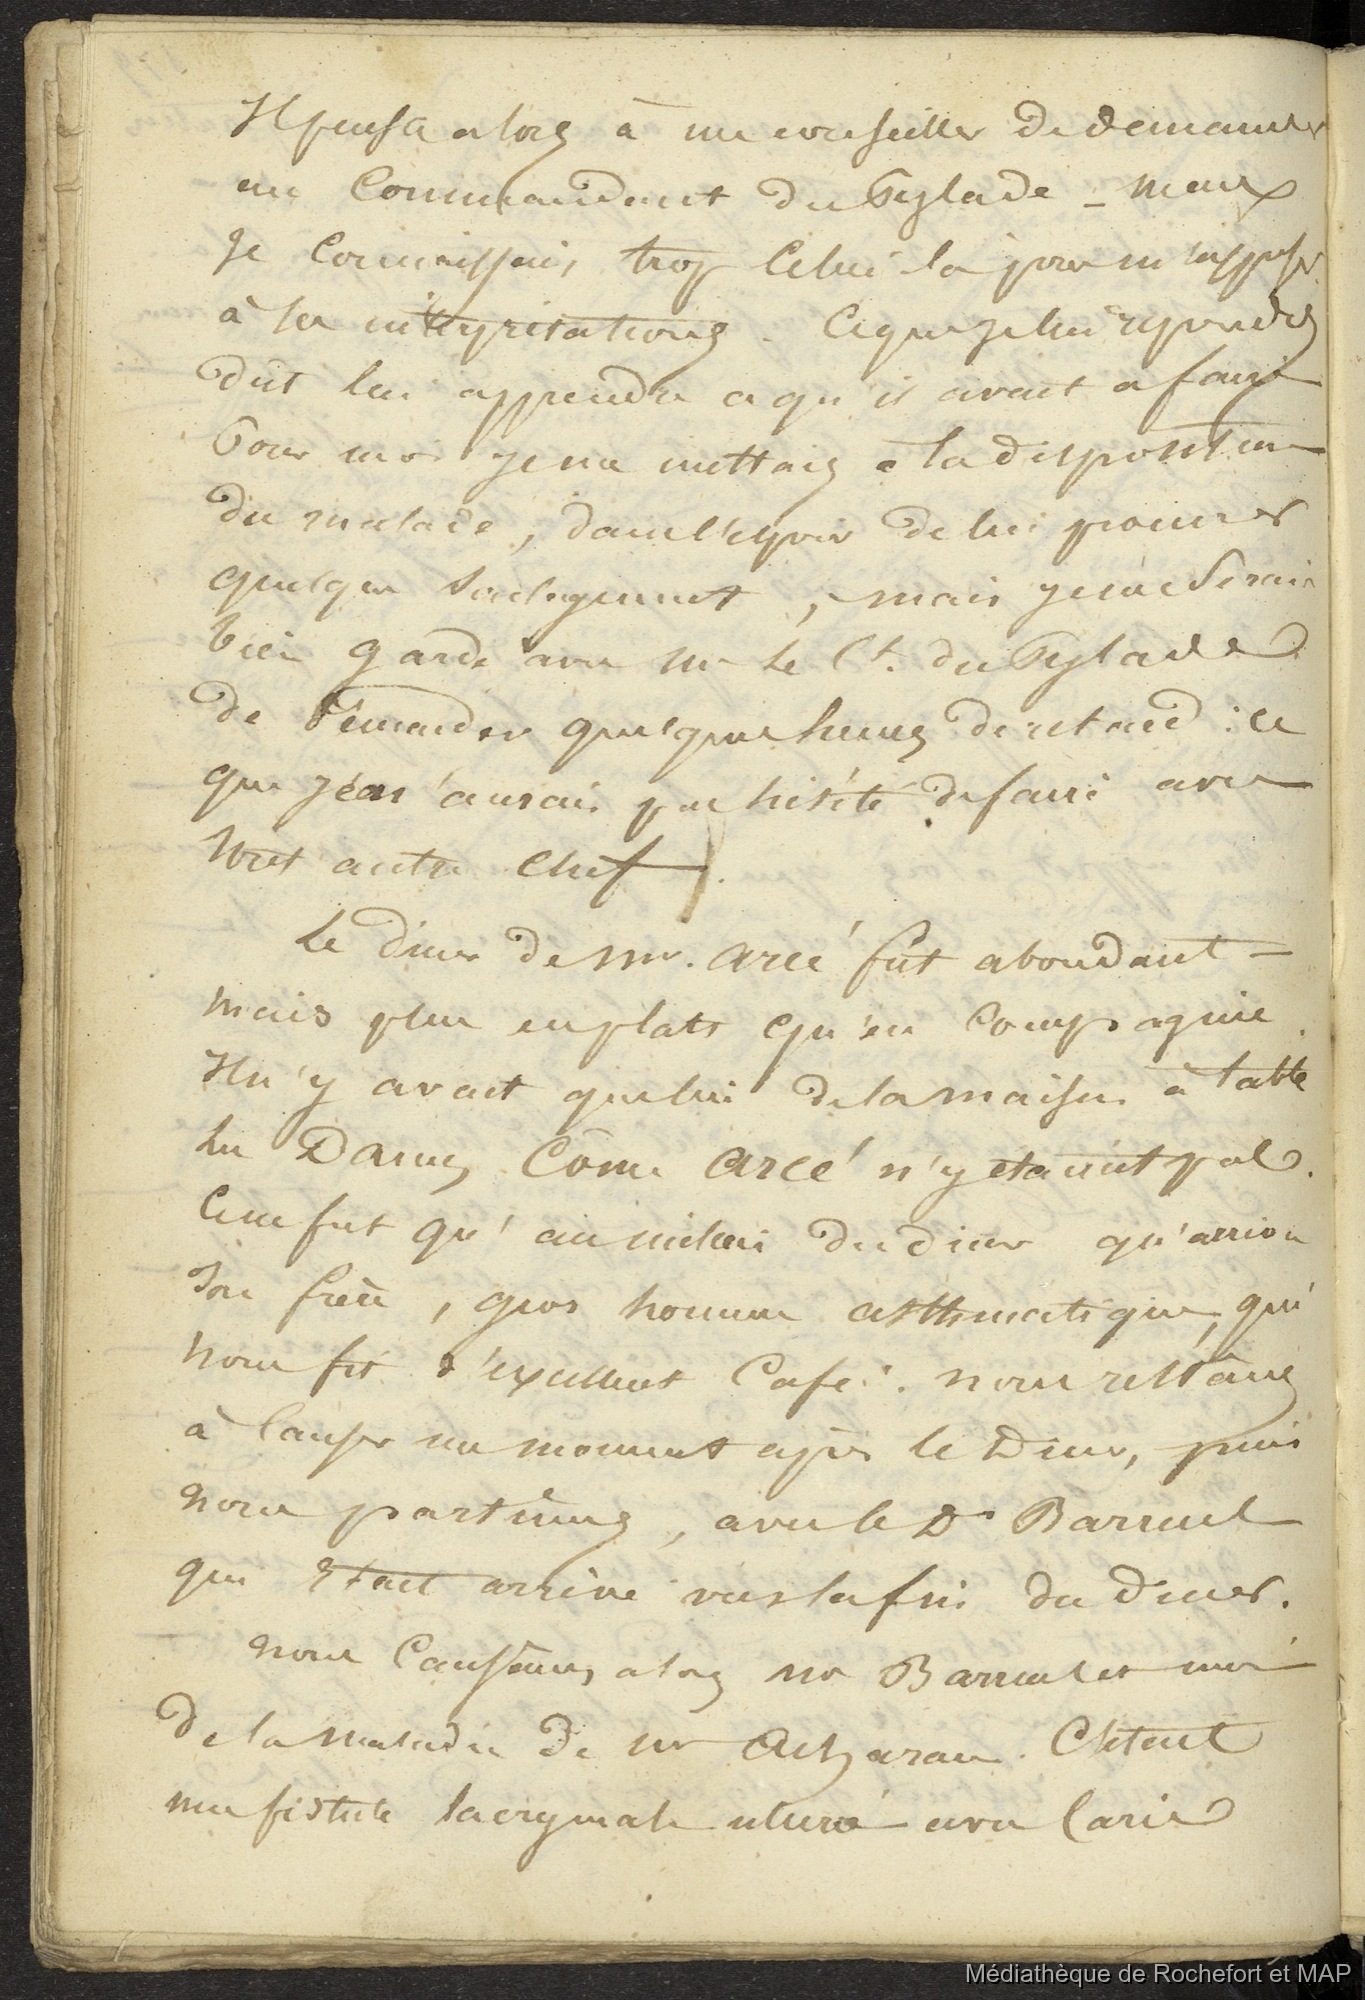 Il pensa alors à me conseiller de demander
au Commandant du Pylade – mais
je connaissais trop celui la pour m'exposer
à ses interprétations. Ce que je lui répondis
dût lui apprendre a qu'il avait a faire
Pour moi je me mettais à la disposition
du malade, dans l'espoir de lui procurer
quelque soulagement, mais je me serais
bien gardé avec mr le Ct. du Pylade
de demander quelques heures de retard : ce
que je n'aurais pas hésité de faire avec
tout autre chef.
Le diner de mr. Arcé fut abondant –
mais plus en plats qu'en compagnie.
Il n'y avait que lui de la maison à table
les Dames Côme Arcé n'y etaient pas.
Ce ne fut qu'au milieu du diner qu'arriva
son frère, gros homme asthmatique, qui
nous fit d'excellent café. nous restâmes
à causer un moment après le Diner, puis
nous partîmes, avec le Dr Barruel
qui était arrivé vers la fin du diner.
nous causâmes alors mr Barruel et moi
de la maladie de mr . C'etait
une fistule lacrymale ulcéré avec carie